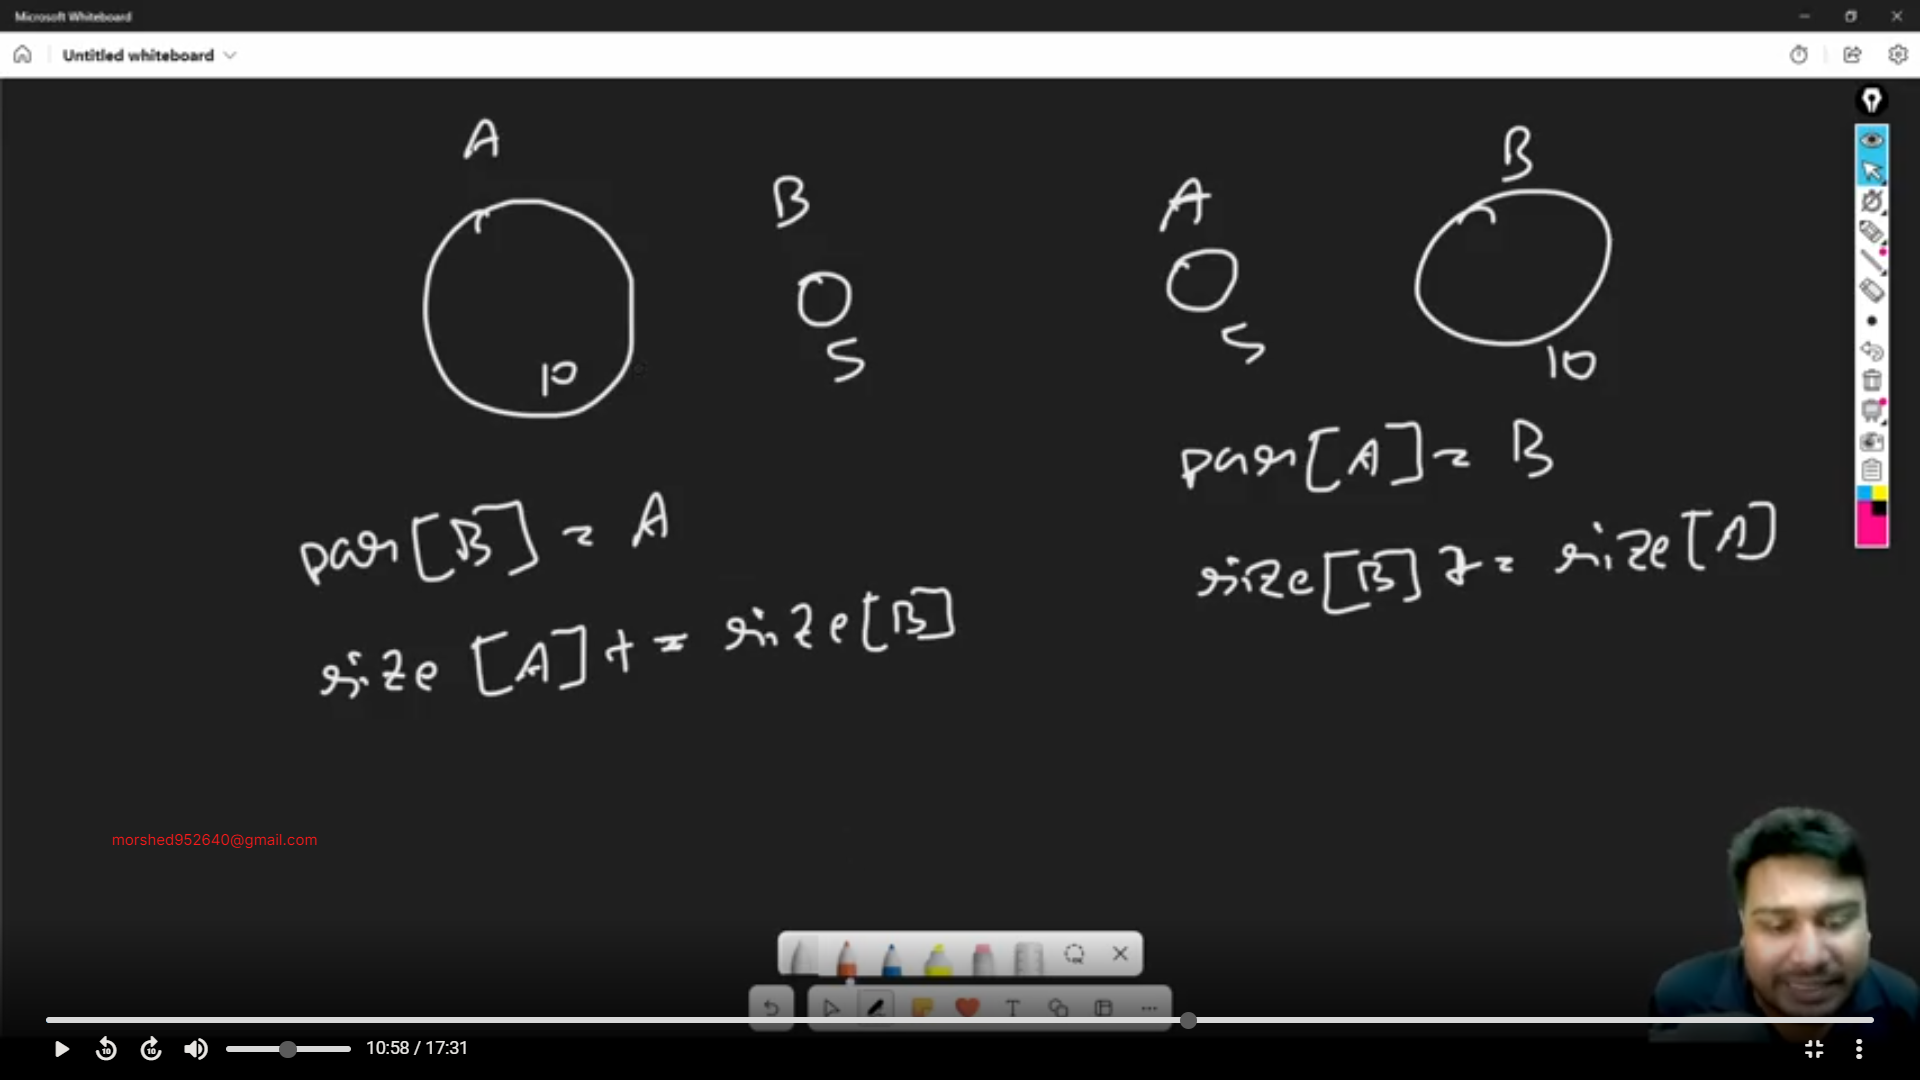 Microsoft Whiteboard
Untitled whiteboard
A
B
10
5
A
B
5
10
par[B] = A
size [A] += size[B]
par[A] = B
size[B] += size[A]
morshed952640@gmail.com
10:58 / 17:31